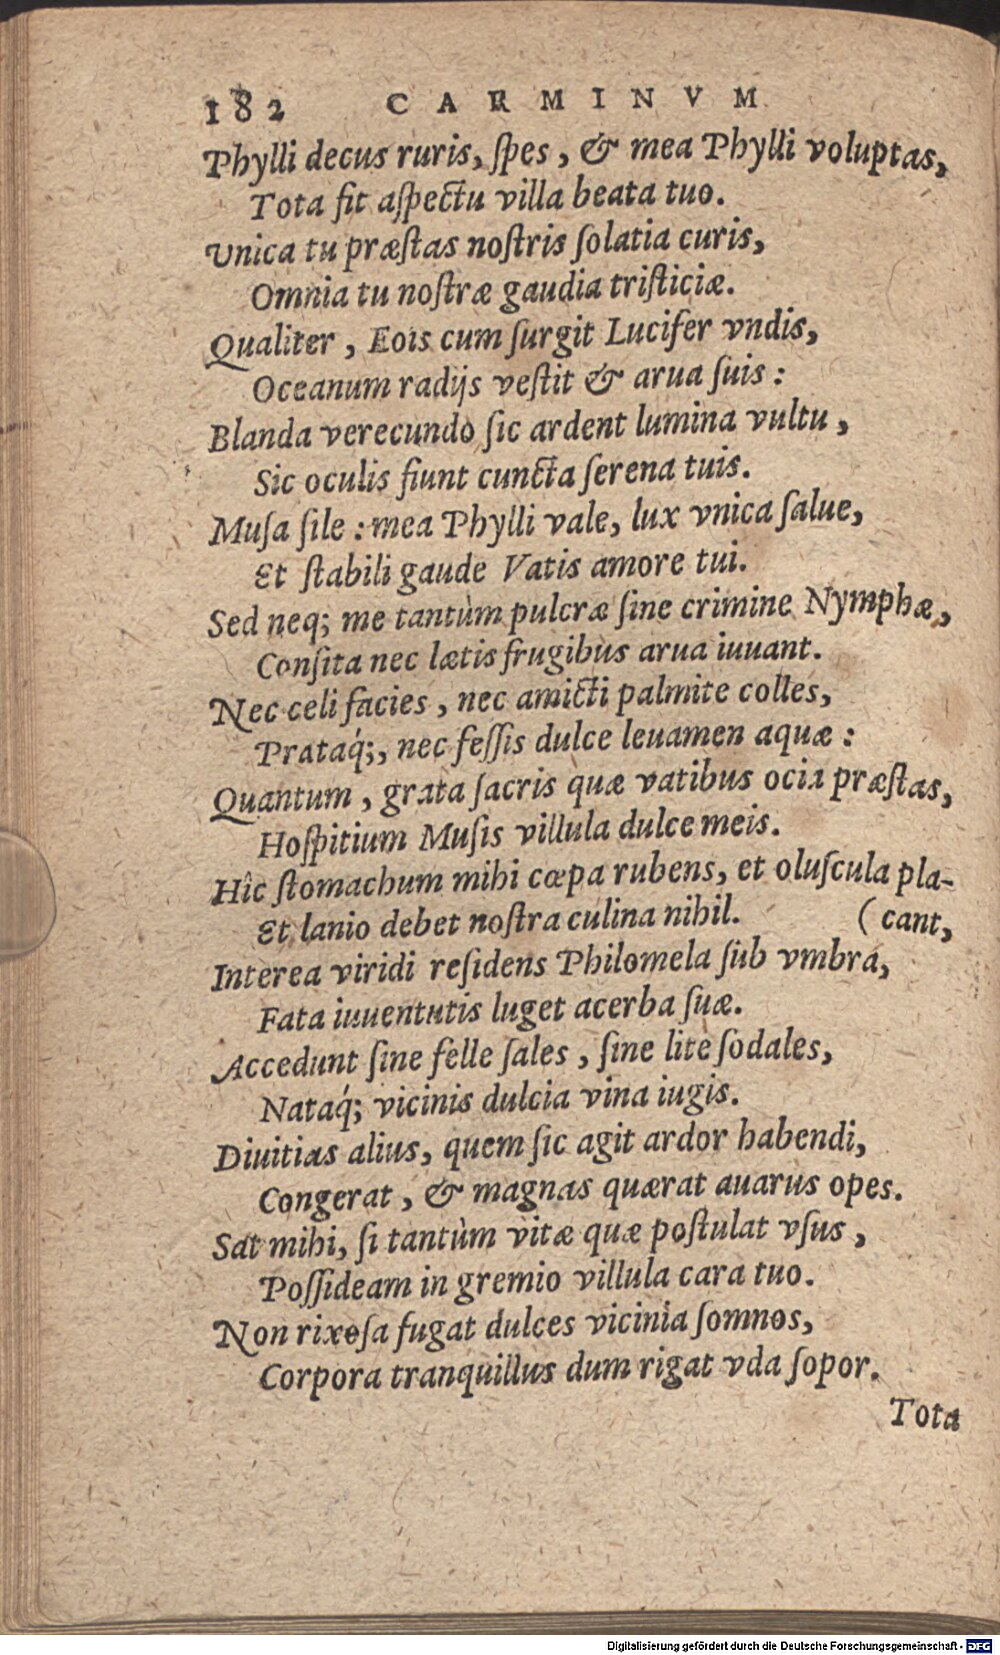 182 CARMINVM
Phylli decus ruris, ſpes, & mea Phylli voluptas,
Tota fit aſpectu villa beata tuo.
Vnica tu præſtas noſtris ſolatia curis,
Omnia tu noſtræ gaudia triſticiæ.
Qualiter, Eois cum ſurgit Lucifer vndis,
Oceanum radijs veſtit & arua ſuis:
Blanda verecundo ſic ardent lumina vultu,
Sic oculis fiunt cuncta ſerena tuis.
Muſa ſile: mea Phylli vale, lux vnica ſalue,
Et ſtabili gaude Vatis amore tui.
Sed neq; me tantùm pulcræ ſine crimine Nymphæ,
Conſita nec lætis frugibus arua iuuant.
Nec celi facies, nec amicti palmite colles,
Prataq́;, nec feſſis dulce leuamen aquæ:
Quantum, grata ſacris quæ vatibus ocia præſtas,
Hoſpitium Muſis villula dulce meis.
Hîc ſtomachum mihi cœpa rubens, et oluſcula pla-
Et lanio debet noſtra culina nihil. (cant,
Interea viridi reſidens Philomela ſub vmbra,
Fata iuuentutis luget acerba ſuæ.
Accedunt ſine felle ſales, ſine lite ſodales,
Nataq́; vicinis dulcia vina iugis.
Diuitias alius, quem ſic agit ardor habendi,
Congerat, & magnas quærat auarus opes.
Sat mihi, ſi tantùm vitæ quæ poſtulat vſus,
Poſſideam in gremio villula cara tuo.
Non rixoſa fugat dulces vicinia ſomnos,
Corpora tranquillus dum rigat vda ſopor.
Tota
Digitalisierung gefördert durch die Deutsche Forschungsgemeinschaft - DFG